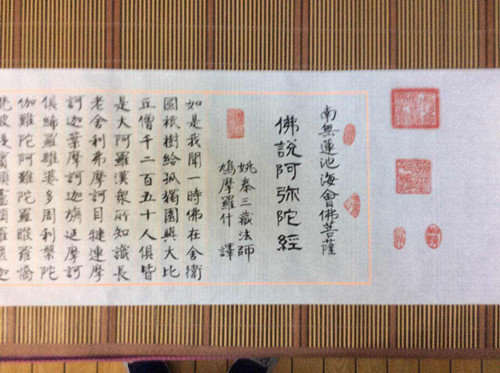 南無蓮池海會佛菩薩
佛說阿弥陀經
姚秦三藏法師
鳩摩羅什 譯
如是我聞一時佛在舍衛
國祇樹給孤獨園與大比
丘僧千二百五十人俱皆
是大阿羅漢衆所知識長
老舍利弗摩訶目犍連摩
訶迦葉摩訶迦旃延摩訶
俱絺羅離婆多周利槃陀
伽難陀阿難陀羅睺羅憍